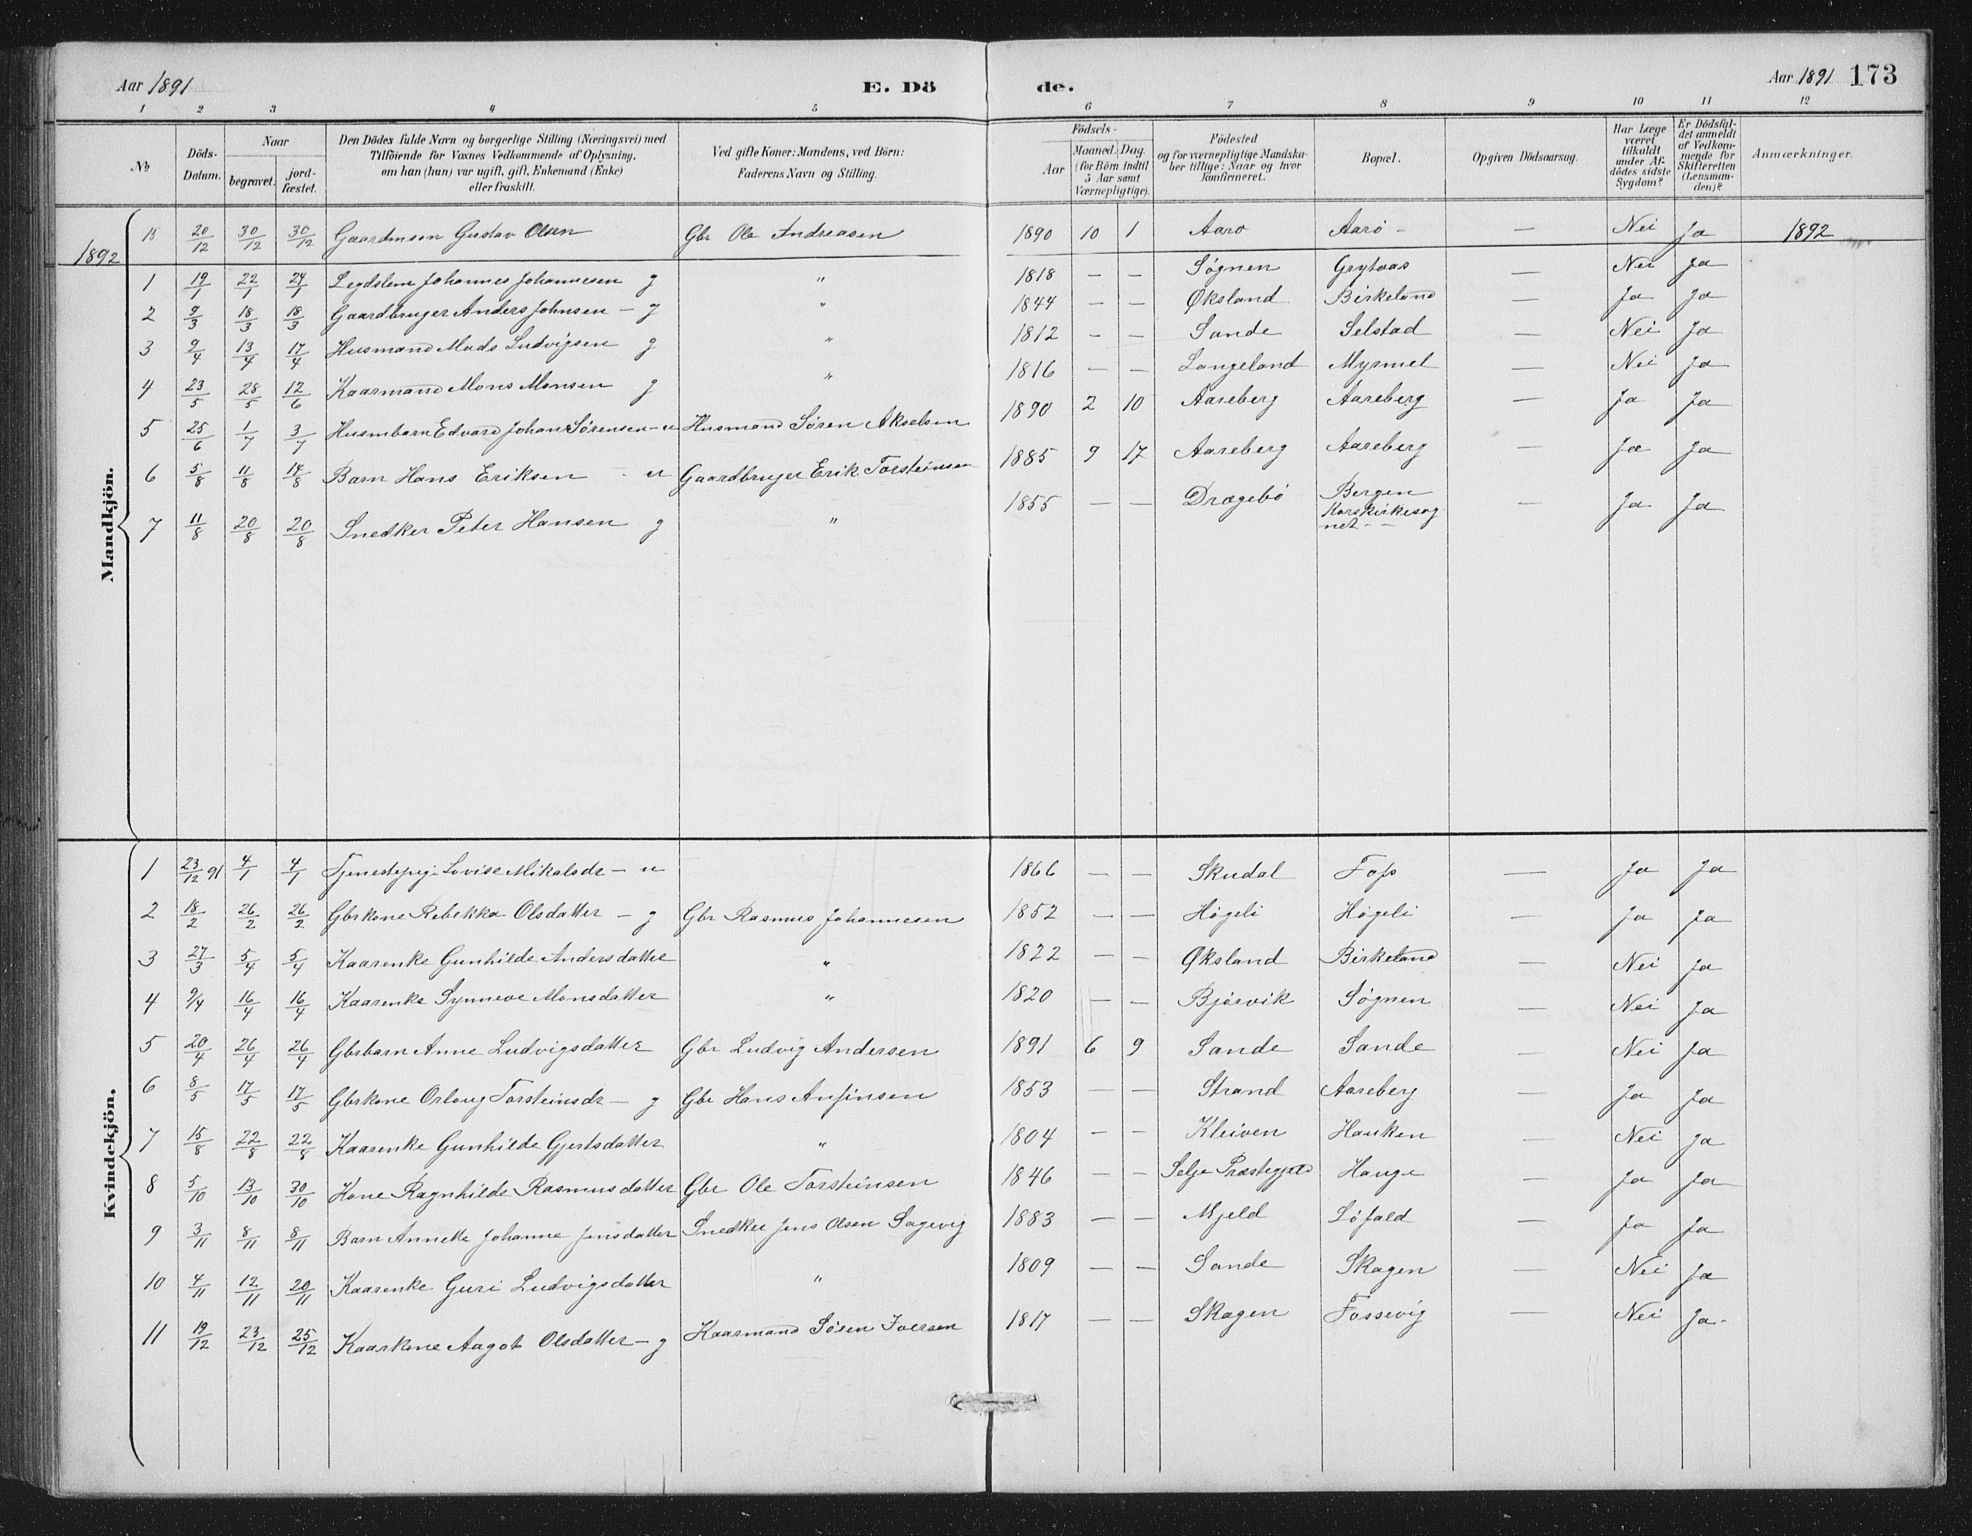 Aar 1891 E. Dö de. Aar 1891 173
1 2 3 4 5 6 7 8 9 10 11 12
No Döds-Datum. Naar begravet. jord-fæstet. Den Dödes fulde Navn og borgerlige Stilling (Næringsvei) med Tilföiende for Voxnes Vedkommende af Oplysning, om han (hun) var ugift, gift, Enkemand (Enke) eller fraskilt. Ved gifte Koner: Mandens, ved Börn: Faderens Navn og Stilling. Födsels- Aar Maaned. Dag. (for Börn indtil 5 Aar samt Værnepligtige). Födested og for værnepligtige Mandskaber tillige: Naar og hvor konfirmeret. Bopæl. Opgiven Dödsaarsag. Har Læge været tilkaldt under Afdödes sidste Sygdom? Er Dödsfaldet anmeldt af Vedkommende for Skifteretten (Lensmanden)? Anmærkninger.
15 20/12 30/12 30/12 Gaardmsøn Gustav Olsen Gbr Ole Andreasen 1890 10 1 Aarø Aarø – — Nei Ja 1892
1892
Mandkjön.
1 19/1 22/1 24/1 Legdslem Johannes Johannesen g " 1818 — — Søgnen Grytaas — Nei Ja
2 9/3 18/3 18/3 Gaardbruger Anders Johnsen – g " 1844 — — Øksland Birkeland — Ja Ja
3 9/4 13/4 17/4 Husmand Mads Ludvigsen g " 1812 — — Sande Selstad — Nei Ja
4 23/5 28/5 12/6 Kaarmand Mons Monsen g " 1816 — — Langeland Myrmel — Nei Ja
5 25/6 1/7 3/7 Husmbarn Edvard Johan Sørensen – u Husmand Søren Akselsen 1890 2 10 Aareberg Aareberg — Ja Ja
6 5/8 11/8 14/8 Barn Hans Eriksen – u Gaardbruger Erik Torsteinsen 1885 9 17 Aareberg Aareberg — Ja Ja
7 11/8 20/8 20/8 Snedker Peter Hansen g " 1855 — — Drægebø Bergen Korskirkesognet – – — Ja Ja
Kvindekjön.
1 23/12 91 4/1 4/1 Tjenestepig. Lovise Mikalsdr – u 1866 — — Skudal Fos — Ja Ja
2 18/2 26/2 26/2 Gbrkone Rebekka Olsdatter – g Gbr Rasmus Johannesen 1852 — — Høgeli Høgeli — Ja Ja
3 27/3 5/4 5/4 Kaarenke Gunhilde Andersdatter " 1822 — — Øksland Birkeland — Nei Ja
4 9/4 16/4 16/4 Kaarenke Synneve Monsdatter " 1820 — — Bjørvik Søgnen — Nei Ja
5 20/4 26/4 26/4 Gbrbarn Anne Ludvigsdatter Gbr Ludvig Andersen 1891 6 9 Sande Sande — Nei Ja
6 8/5 17/5 17/5 Gbrkone Orlaug Torsteinsdr – g Gbr Hans Anfinsen 1853 — — Strand Aareberg — Ja Ja
7 15/8 22/8 22/8 Kaarenke Gunhilde Gjertsdatter " 1804 — — Kleiven Hauken — Nei Ja
8 5/10 13/10 30/10 Kone Ragnhilde Rasmusdatter Gbr Ole Torsteinsen 1846 — — Selje Præstegjeld Hauge — Ja Ja
9 3/11 8/11 8/11 Barn Annette Johanne Jensdatter Snedker Jens Olsen Sagevig 1883 — — Mjeld Løfald — Ja Ja
10 4/11 12/11 20/11 Kaarenke Guri Ludvigsdatter " 1809 — — Sande Skagen — Nei Ja
11 19/12 23/12 25/12 Kaarkone Aagot Olsdatter – g Kaarmand Søren Iversen 1817 — — Skagen Fossevig — Nei Ja.